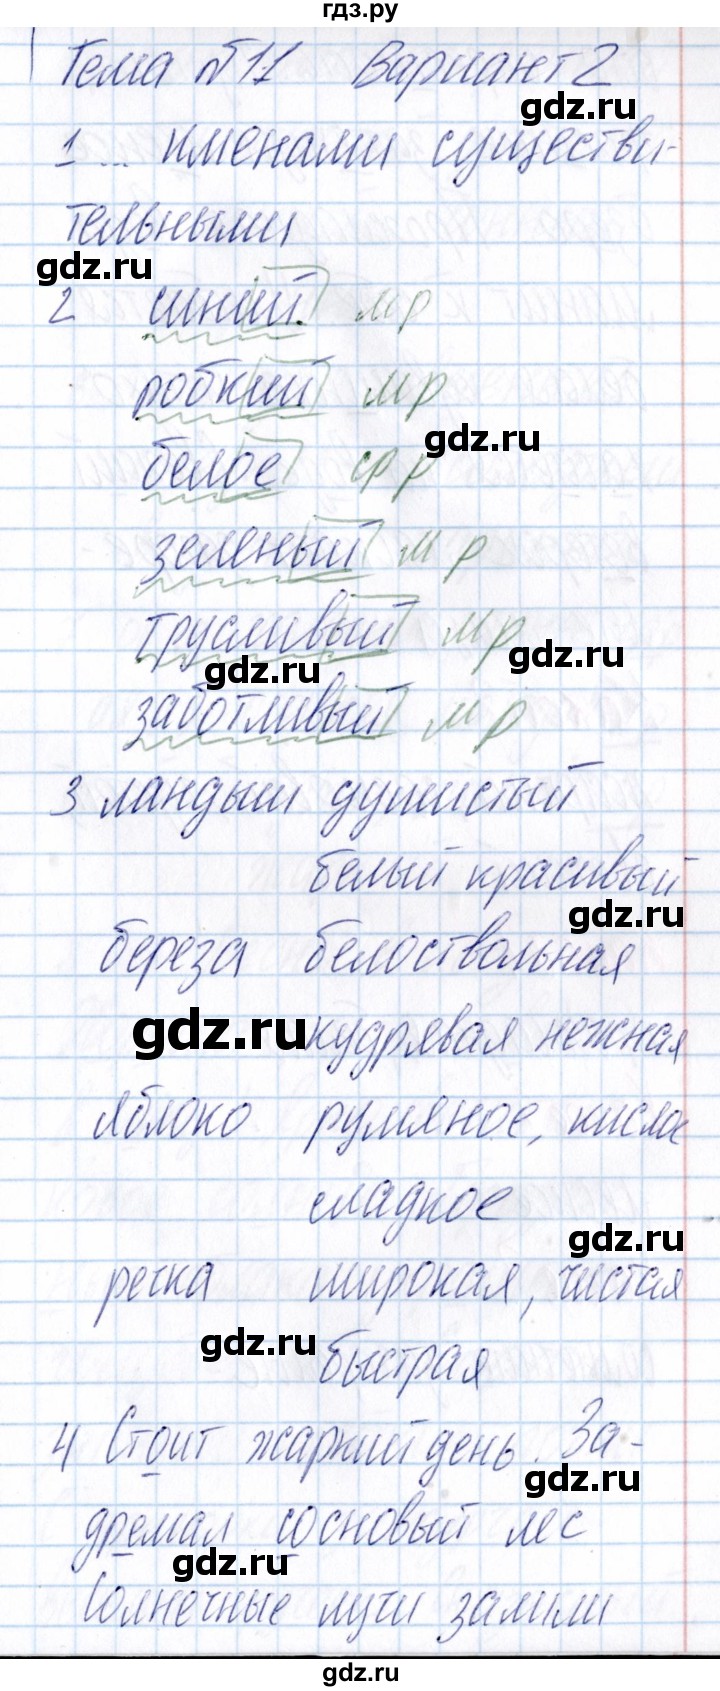 гдз.ру
Тема №11 Вариант 2
gdz.ru
1 ... именами существи-
тельными
gdz.ru
2 синий мр
робкий мр
gdz.ru
белое ср р
зеленый мр
трусливый мр
gdz.ru
gdz.ru
заботливый мр
3 ландыш душистый
белый красивый
gdz.ru
береза белоствольная
gdz.ru
кудрявая нежная
яблоко румяное, кислое
сладкое
gdz.ru
речка широкая, чистая
gdz.ru
быстрая
4 Стоит жаркий день. За-
gdz.ru
дремал сосновый лес
gdz.ru
Солнечные лучи залили
gdz.ru